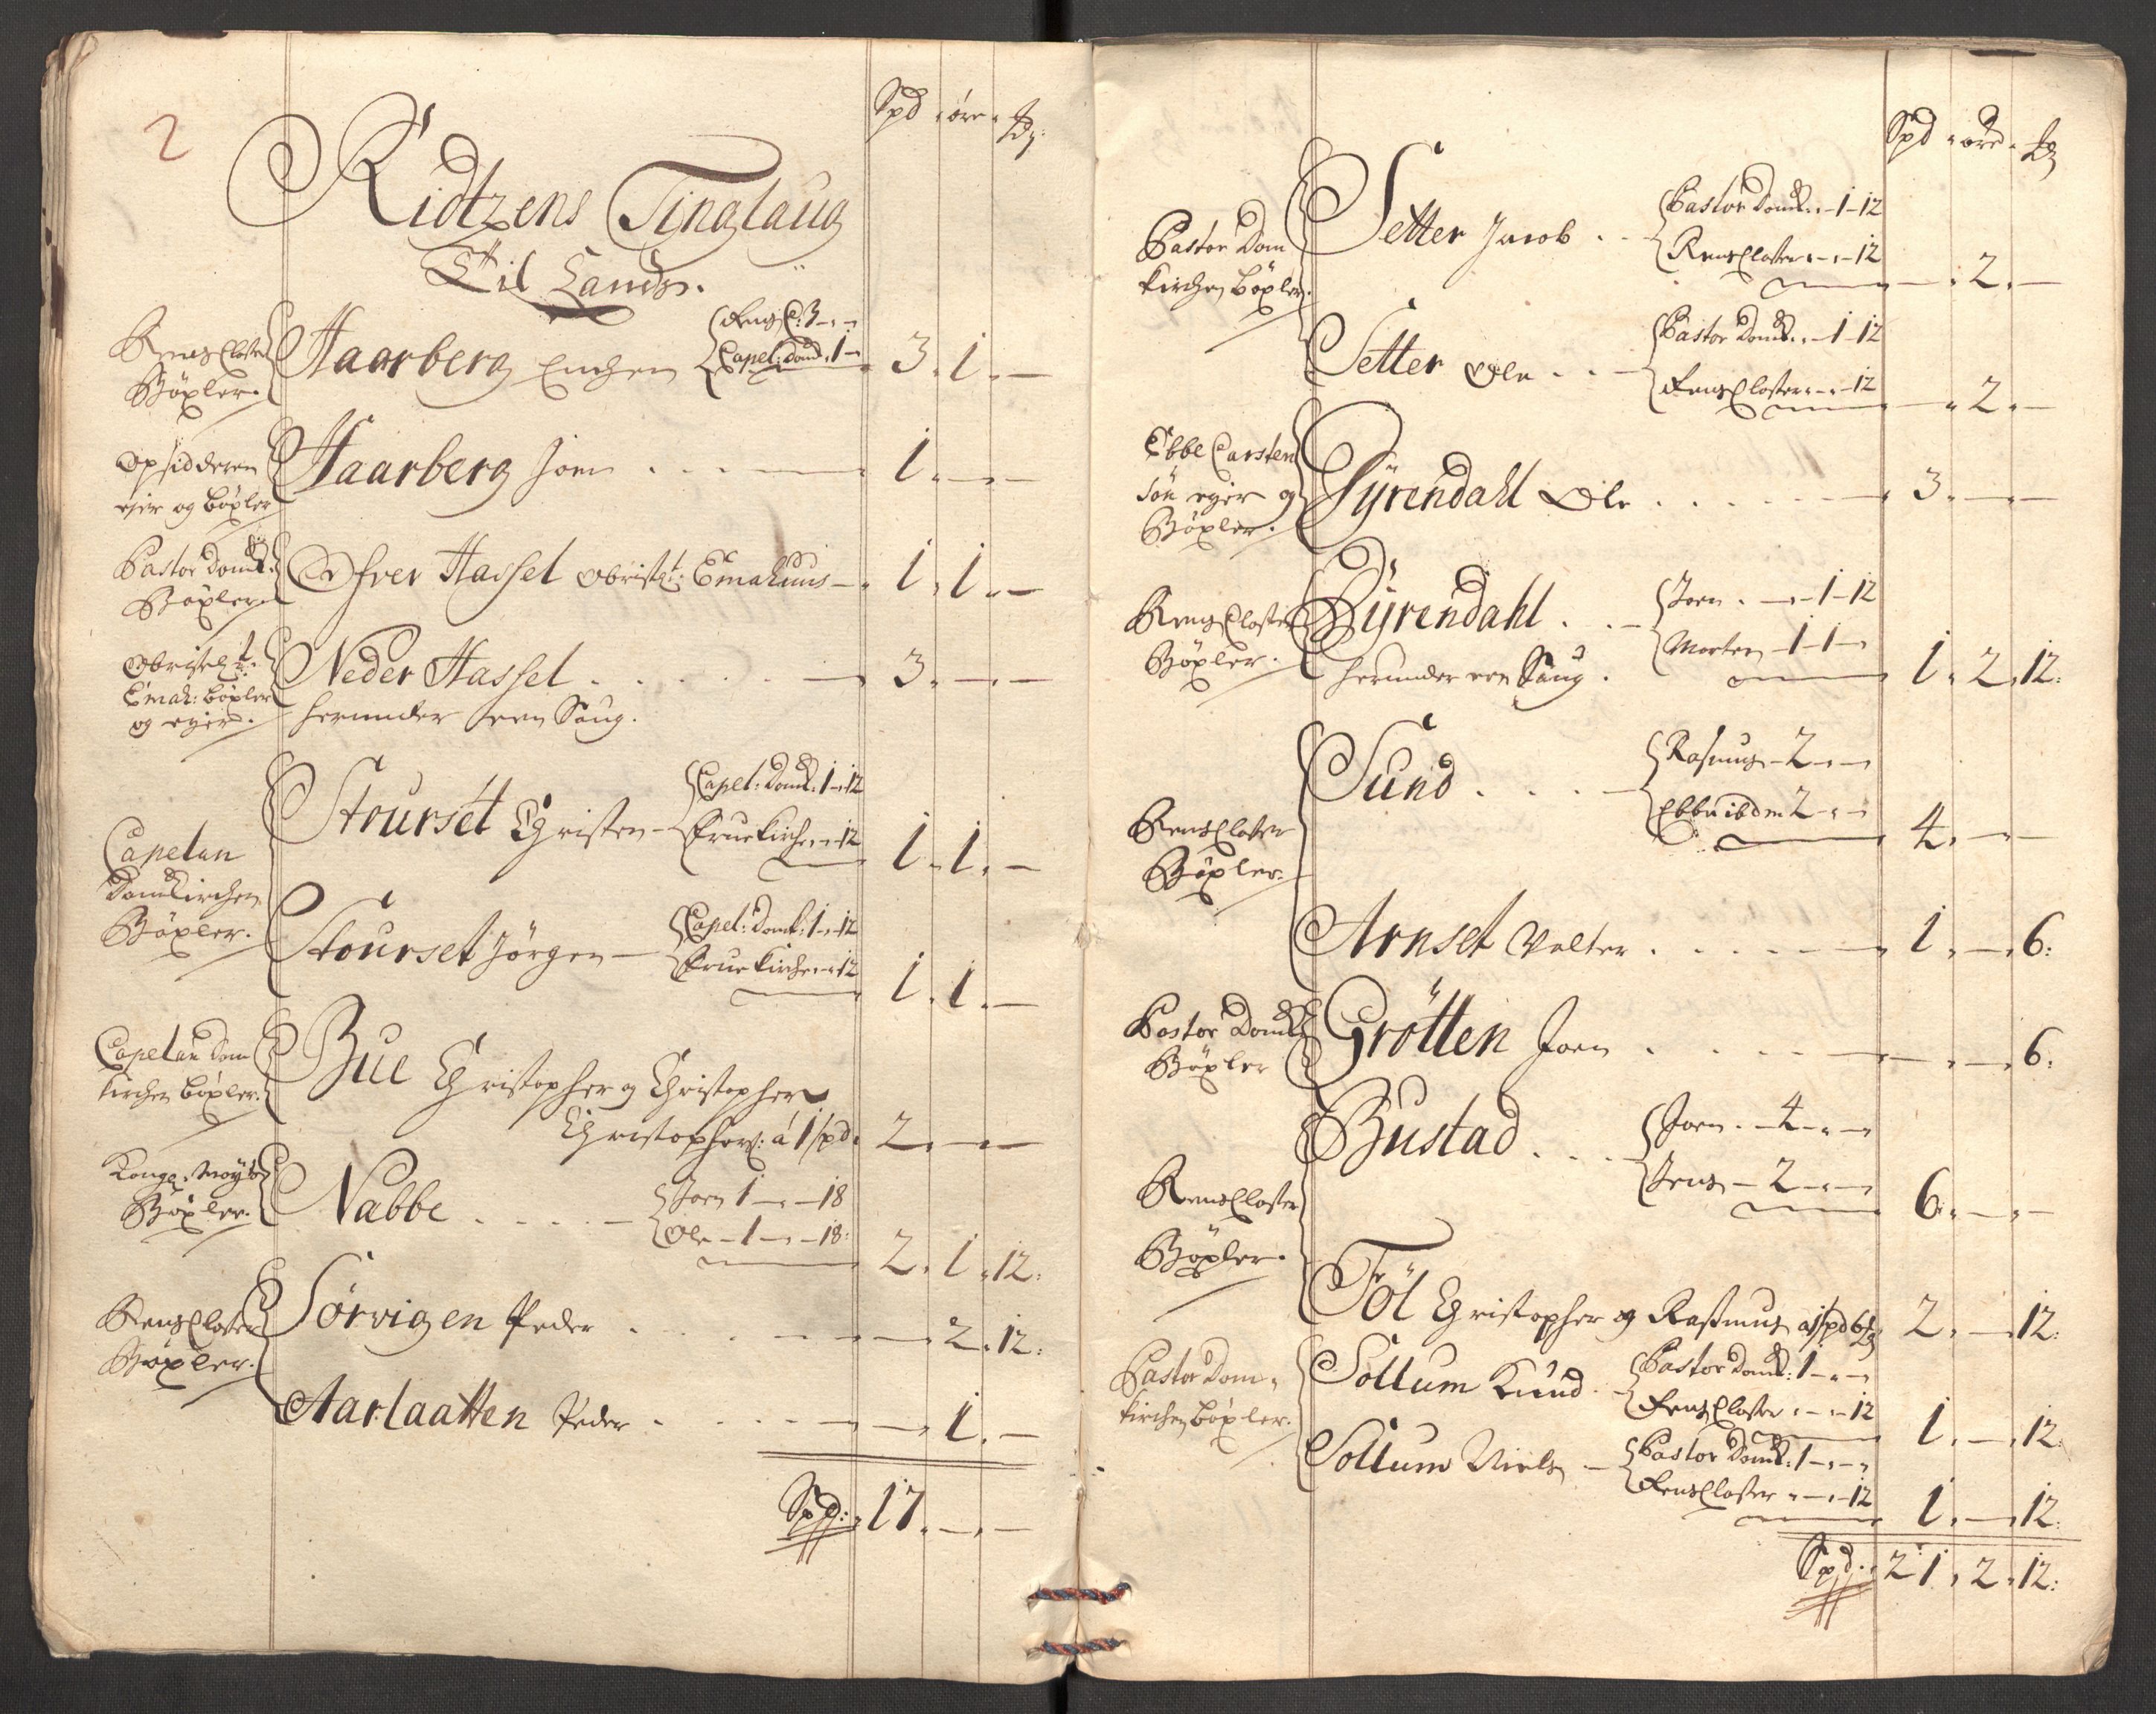 2
Spd öre
Ridtzens Tinglaug
Til Landz.
Rens Closter
Böxler.
Haarberg Enchen
Rens C: 3 - -
Capel: Domk: 1 -
3 . 1 . -
Opsidderen
ejer og böxler
Haarberg Joen . . . 1 . - . -
Pastor Domk:
Böxler
Ofver Hassel Obrist Lt: Emahuus - 1 . 1 . -
Obrist Lt:
Emah: böxler
og ejer.
Neder Hassel . . . . . 3 . - . -
herunder een Saug.
Capelan
Domkirchen
Böxler.
Stourset Christen -
Capel: Domk: 1 - 12
Frue Kirche - 12
1 . 1 . -
Stourset Jörgen -
Capel: Domk: 1 - 12
Frue Kirche - 12
1 . 1 . -
Capelan Dom
kirchen böxler.
Bue Christopher og Christopher
Christophers: á 1 spd. 2 . - . -
Kong: Mayts
Böxler.
Nabbe . . . . . -
Joen 1 - - 18
Ole - 1 - - 18:
2 . 1 . 12:
Rens Closter
Böxler.
Sörvigen Peder . . . . - 2 . 12:
Aarlaatten Peder . . . . - 1 . -
Spd: 17 . - . -
Spd öre
Pastor Dom
kirchen böxler.
Setter Jacob . . -
Pastor Domk: . - 1 - 12
Rens Closter . - . - 12
- . 2 . -
Setter Ole . . -
Pastor Domk: . - 1 - 12
Rens Closter . - . - 12
- . 2 . -
Ebbe Carsten
sön ejer og
Böxler.
Pyrendahl Ole . . . . . 3 . - . -
Rens Closter
Böxler.
Pyrendahl . . . -
Joen . - . - 1 - 12
Morten - 1 - 1 -
herunder een Saug .
1 . 2 . 12:
Rens Closter
Böxler.
Sund . . . . -
Rasmus - 2 - . -
Ebbe ibdm 2 - . -
4 . - . -
Arnset Volter . . . . . 1 . - . 6:
Pastor Domk
Böxler
Grötten Joen . . . . - . - . 6:
Rens Closter
Böxler.
Bustad . . . -
Joen . - 4 - . -
Jens - 2 - . -
6 . - . -
Föl Christopher og Rasmus á 1 spd 6 2 . - . 12:
Pastor Dom
kirchen böxler.
Sollum Knud . -
Pastor Domk: 1 - . -
Rens Closter . - . - 12
1 . - . 12:
Sollum Niels -
Pastor Domk: 1 - . -
Rens Closter . - . - 12
1 . - . 12:
Spd: 21 . 2 . 12: